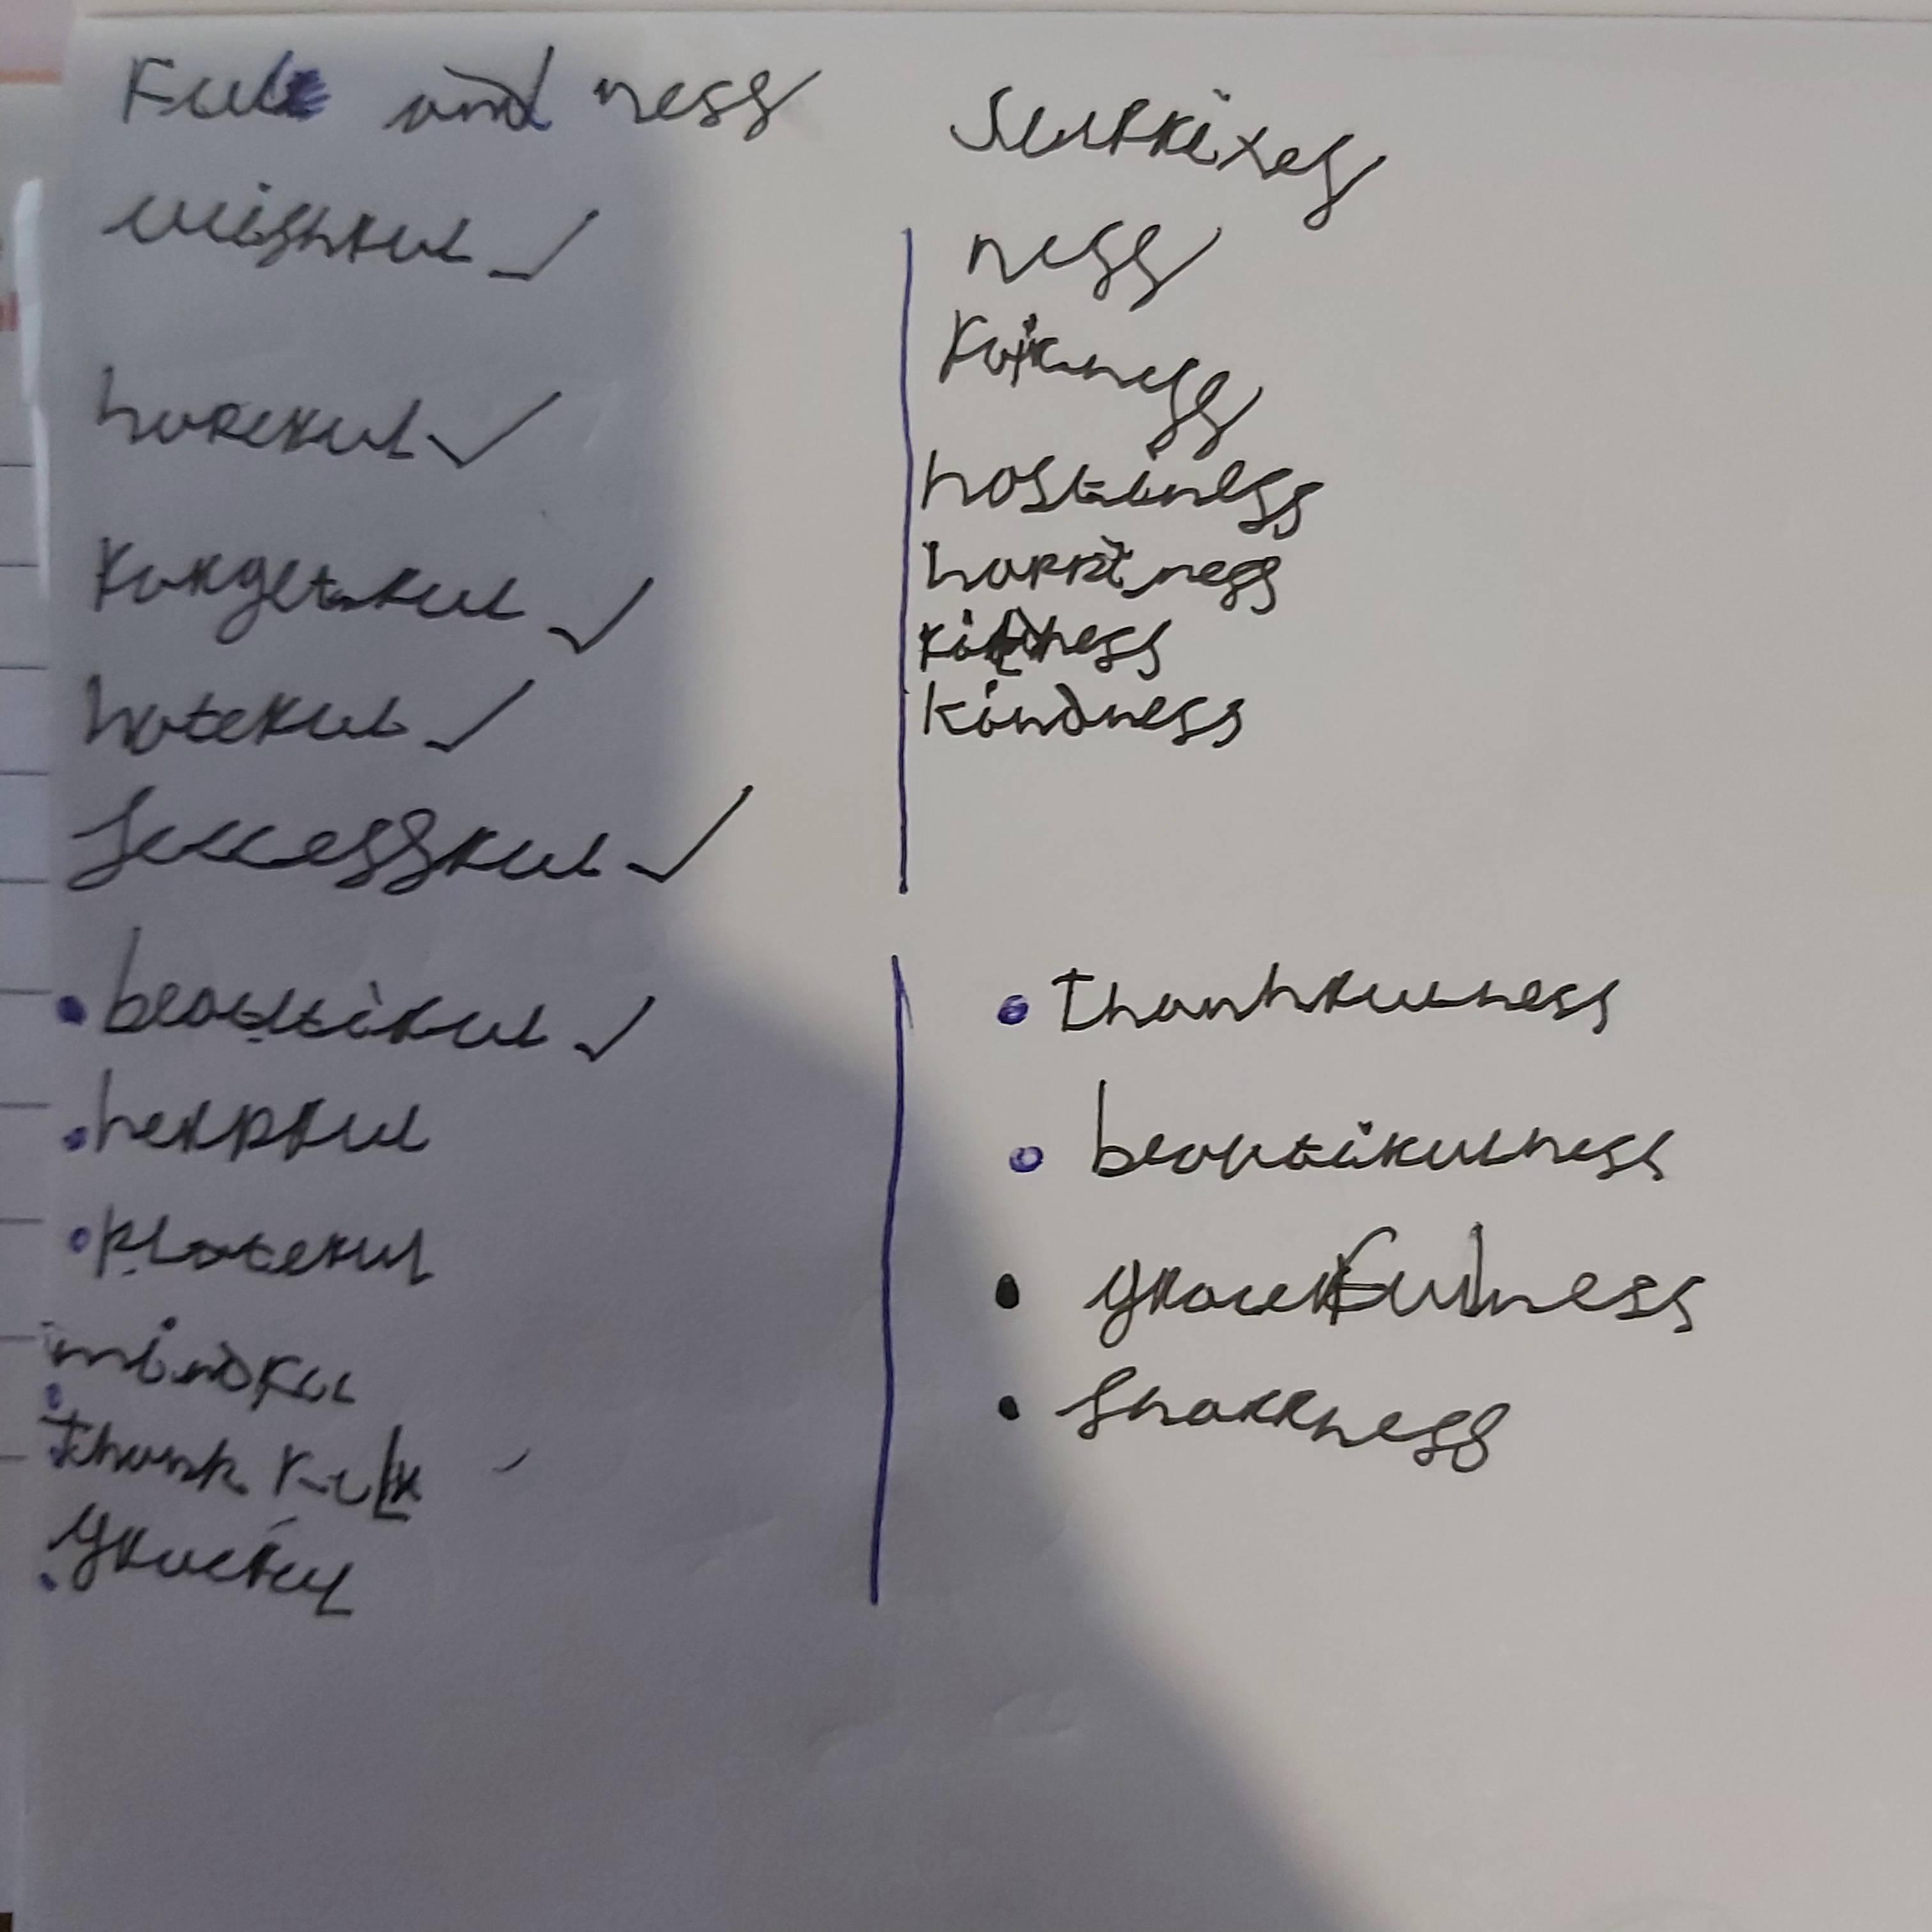 Ful and ness Suffixes
wishful
hopeful
forgetful
hateful
successful
• beautiful
• helpful
• plateful
mindful
thankful
• graceful
ness
fairness
hostiness
happiness
kindness
• thankfulness
• beautifulness
• gracefulness
• sharpness